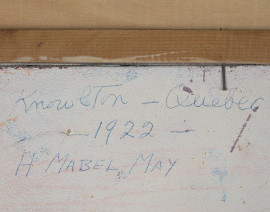 Knowlton – Quebec
– 1922 –
H MABEL MAY